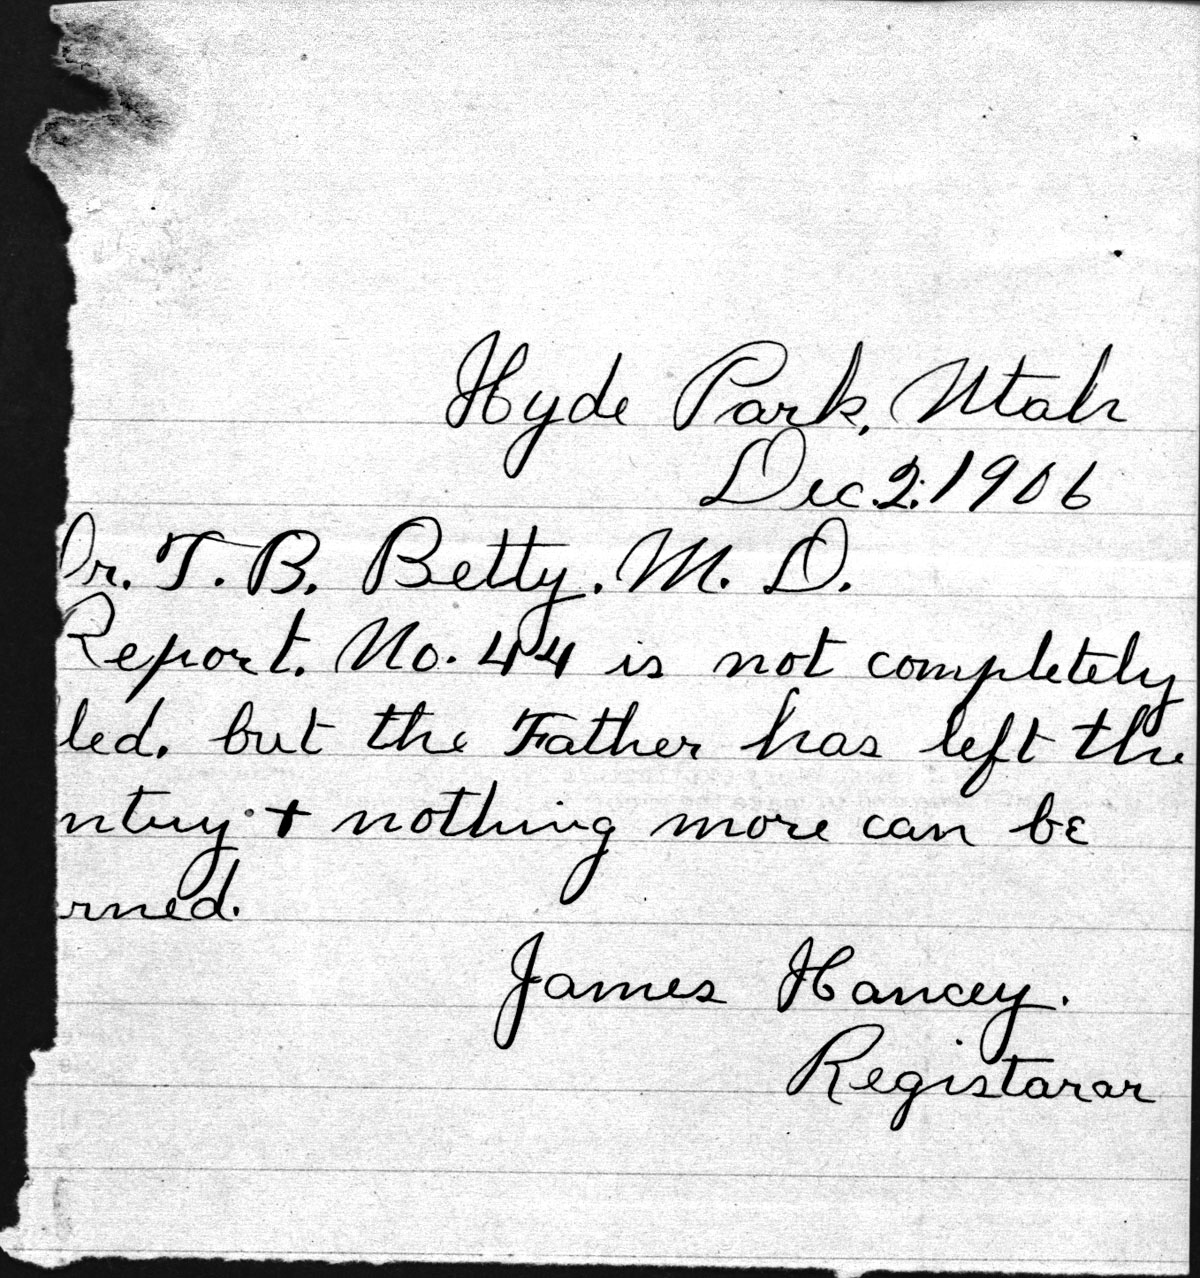 Hyde Park, Utah
Dec. 2. 1906
Dr. T. B. Betty. M. D.
Report. No. 44 is not completely
led. but the Father has left the
ntry + nothing more can be
rned.
James Hancey.
Registarar